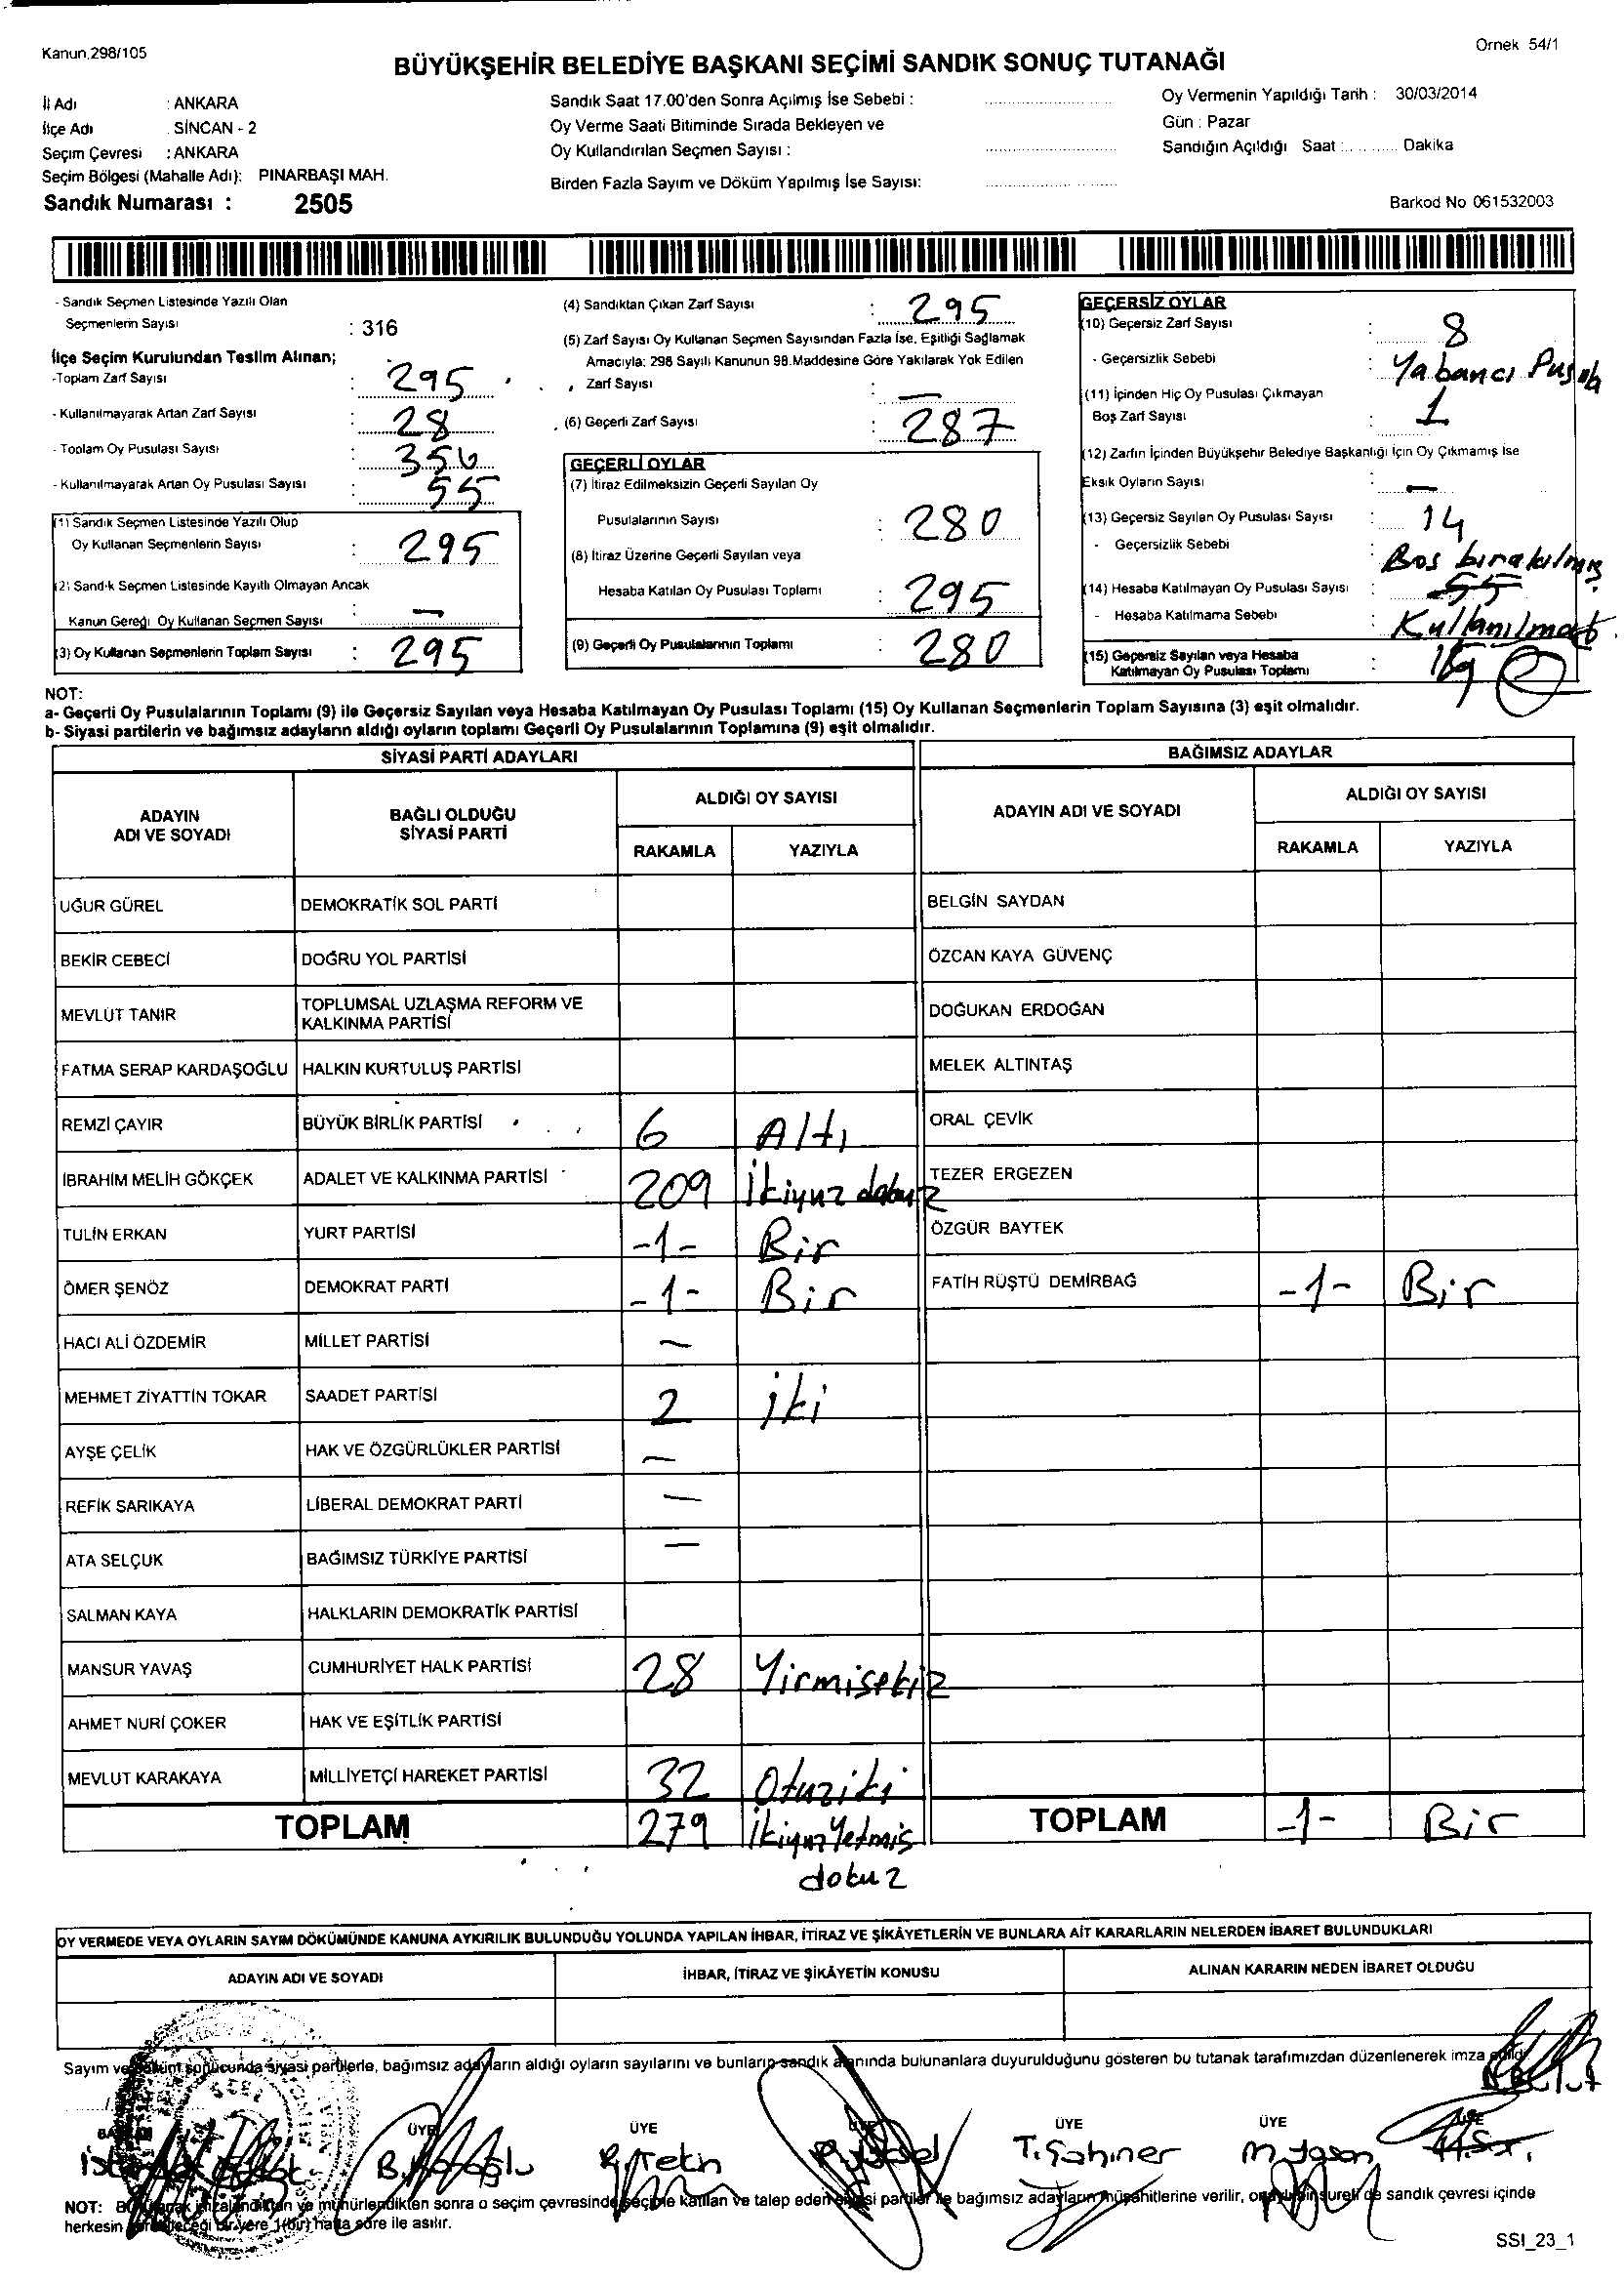 Kanun.298/105
Örnek 54/1
BÜYÜKŞEHİR BELEDİYE BAŞKANI SEÇİMİ SANDIK SONUÇ TUTANAĞI
İl Adı : ANKARA
İlçe Adı : SİNCAN - 2
Seçim Çevresi : ANKARA
Seçim Bölgesi (Mahalle Adı): PINARBAŞI MAH.
Sandık Numarası : 2505
Sandık Saat 17.00'den Sonra Açılmış İse Sebebi :
Oy Verme Saati Bitiminde Sırada Bekleyen ve
Oy Kullandırılan Seçmen Sayısı :
Birden Fazla Sayım ve Döküm Yapılmış İse Sayısı:
Oy Vermenin Yapıldığı Tarih : 30/03/2014
Gün : Pazar
Sandığın Açıldığı Saat : Dakika
Barkod No 061532003
- Sandık Seçmen Listesinde Yazılı Olan
Seçmenlerin Sayısı : 316
İlçe Seçim Kurulundan Teslim Alınan;
-Toplam Zarf Sayısı : 295
- Kullanılmayarak Artan Zarf Sayısı : 28
- Toplam Oy Pusulası Sayısı : 350
- Kullanılmayarak Artan Oy Pusulası Sayısı : 55
(1) Sandık Seçmen Listesinde Yazılı Olup
Oy Kullanan Seçmenlerin Sayısı : 295
(2) Sandık Seçmen Listesinde Kayıtlı Olmayan Ancak
Kanun Gereği Oy Kullanan Seçmen Sayısı : -
(3) Oy Kullanan Seçmenlerin Toplam Sayısı : 295
(4) Sandıktan Çıkan Zarf Sayısı : 295
(5) Zarf Sayısı Oy Kullanan Seçmen Sayısından Fazla İse, Eşitliği Sağlamak
Amacıyla: 298 Sayılı Kanunun 98.Maddesine Göre Yakılarak Yok Edilen
Zarf Sayısı : -
(6) Geçerli Zarf Sayısı : 287
GEÇERLİ OYLAR
(7) İtiraz Edilmeksizin Geçerli Sayılan Oy
Pusulalarının Sayısı : 280
(8) İtiraz Üzerine Geçerli Sayılan veya
Hesaba Katılan Oy Pusulası Toplamı : 295
(9) Geçerli Oy Pusulalarının Toplamı : 280
GEÇERSİZ OYLAR
(10) Geçersiz Zarf Sayısı : 8
- Geçersizlik Sebebi : Yabancı Pusula
(11) İçinden Hiç Oy Pusulası Çıkmayan
Boş Zarf Sayısı : 1
(12) Zarfın İçinden Büyükşehir Belediye Başkanlığı İçin Oy Çıkmamış İse
Eksik Oyların Sayısı : -
(13) Geçersiz Sayılan Oy Pusulası Sayısı : 14
- Geçersizlik Sebebi : Boş bırakılmış
(14) Hesaba Katılmayan Oy Pusulası Sayısı : 55
- Hesaba Katılmama Sebebi
(15) Geçersiz Sayılan veya Hesaba
Katılmayan Oy Pusulası Toplamı :
NOT:
a- Geçerli Oy Pusulalarının Toplamı (9) ile Geçersiz Sayılan veya Hesaba Katılmayan Oy Pusulası Toplamı (15) Oy Kullanan Seçmenlerin Toplam Sayısına (3) eşit olmalıdır.
b- Siyasi partilerin ve bağımsız adayların aldığı oyların toplamı Geçerli Oy Pusulalarının Toplamına (9) eşit olmalıdır.
SİYASİ PARTİ ADAYLARI
BAĞIMSIZ ADAYLAR
ADAYIN
ADI VE SOYADI
BAĞLI OLDUĞU
SİYASİ PARTİ
ALDIĞI OY SAYISI
RAKAMLA YAZIYLA
ADAYIN ADI VE SOYADI
ALDIĞI OY SAYISI
RAKAMLA YAZIYLA
UĞUR GÜREL DEMOKRATİK SOL PARTİ BELGİN SAYDAN
BEKİR CEBECİ DOĞRU YOL PARTİSİ ÖZCAN KAYA GÜVENÇ
MEVLÜT TANIR TOPLUMSAL UZLAŞMA REFORM VE
KALKINMA PARTİSİ DOĞUKAN ERDOĞAN
FATMA SERAP KARDAŞOĞLU HALKIN KURTULUŞ PARTİSİ MELEK ALTINTAŞ
REMZİ ÇAYIR BÜYÜK BİRLİK PARTİSİ 6 Altı ORAL ÇEVİK
İBRAHİM MELİH GÖKÇEK ADALET VE KALKINMA PARTİSİ 209 İkiyuz dokuz TEZER ERGEZEN
TULİN ERKAN YURT PARTİSİ -1- Bir ÖZGÜR BAYTEK
ÖMER ŞENÖZ DEMOKRAT PARTİ -1- Bir FATİH RÜŞTÜ DEMİRBAĞ -1- Bir
HACI ALİ ÖZDEMİR MİLLET PARTİSİ -
MEHMET ZİYATTİN TOKAR SAADET PARTİSİ 2 iki
AYŞE ÇELİK HAK VE ÖZGÜRLÜKLER PARTİSİ -
REFİK SARIKAYA LİBERAL DEMOKRAT PARTİ -
ATA SELÇUK BAĞIMSIZ TÜRKİYE PARTİSİ -
SALMAN KAYA HALKLARIN DEMOKRATİK PARTİSİ
MANSUR YAVAŞ CUMHURİYET HALK PARTİSİ 28 Yirmisekiz
AHMET NURİ ÇOKER HAK VE EŞİTLİK PARTİSİ
MEVLUT KARAKAYA MİLLİYETÇİ HAREKET PARTİSİ 32 Otuziki
TOPLAM 279 İkiyuzYetmiş TOPLAM -1- Bir
dokuz
OY VERMEDE VEYA OYLARIN SAYIM DÖKÜMÜNDE KANUNA AYKIRILIK BULUNDUĞU YOLUNDA YAPILAN İHBAR, İTİRAZ VE ŞİKÂYETLERİN VE BUNLARA AİT KARARLARIN NELERDEN İBARET BULUNDUKLARI
ADAYIN ADI VE SOYADI İHBAR, İTİRAZ VE ŞİKÂYETİN KONUSU ALINAN KARARIN NEDEN İBARET OLDUĞU
Sayım ve sonucunda siyasi partilerle, bağımsız adayların aldığı oyların sayılarını ve bunların sandık alanında bulunanlara duyurulduğunu gösteren bu tutanak tarafımızdan düzenlenerek imza edildi
ÜYE ÜYE ÜYE ÜYE
T.Şahiner
NOT: imzalandıktan ve mühürlendikten sonra o seçim çevresinde seçime katılan ve talep eden siyasi partiler ile bağımsız adayların müşahitlerine verilir, sureti de sandık çevresi içinde
herkesin bir yere 1(bir) hafta süre ile asılır.
SSI_23_1